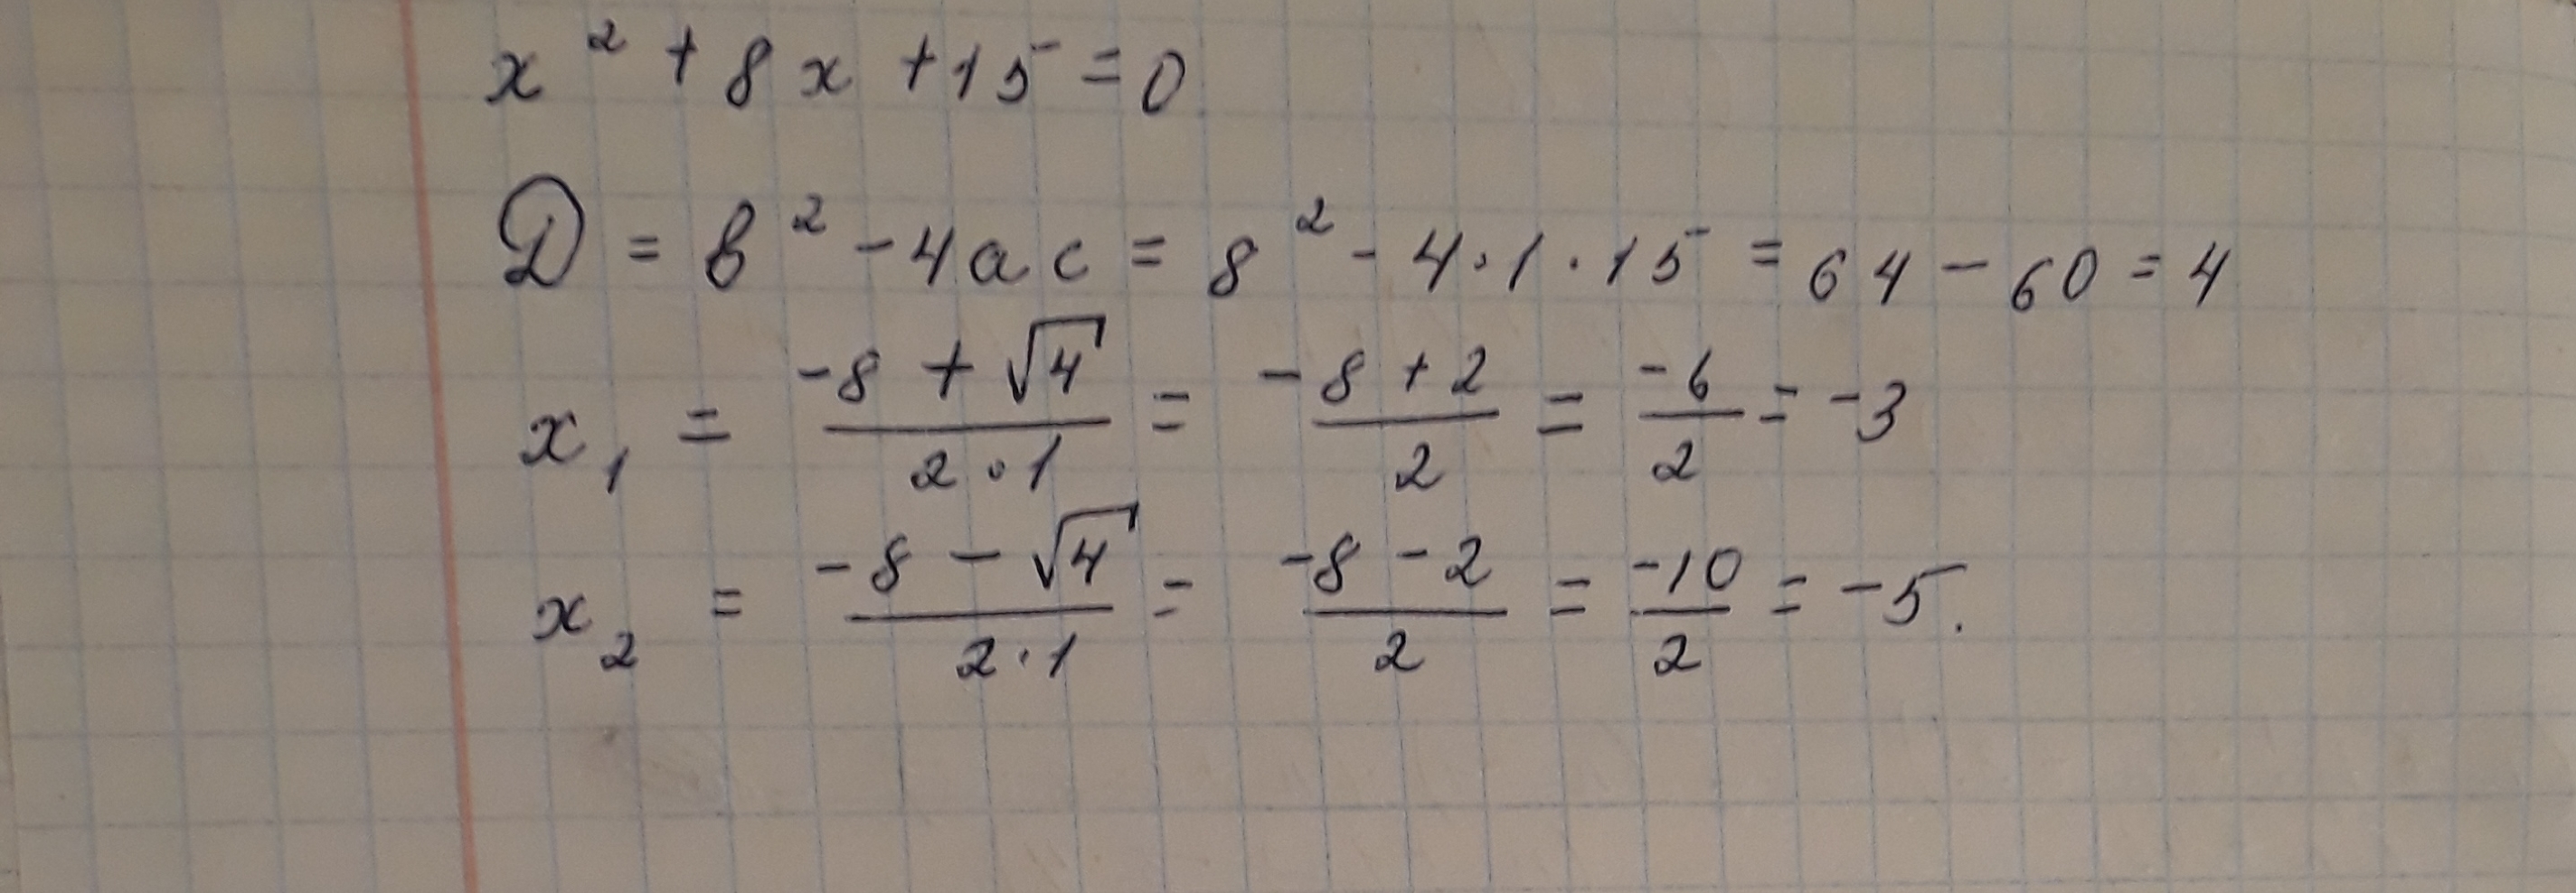 x² + 8x + 15 = 0
D = b² - 4ac = 8² - 4·1·15 = 64 - 60 = 4
x₁ = (-8 + √4)/(2·1) = (-8 + 2)/2 = -6/2 = -3
x₂ = (-8 - √4)/(2·1) = (-8 - 2)/2 = -10/2 = -5.